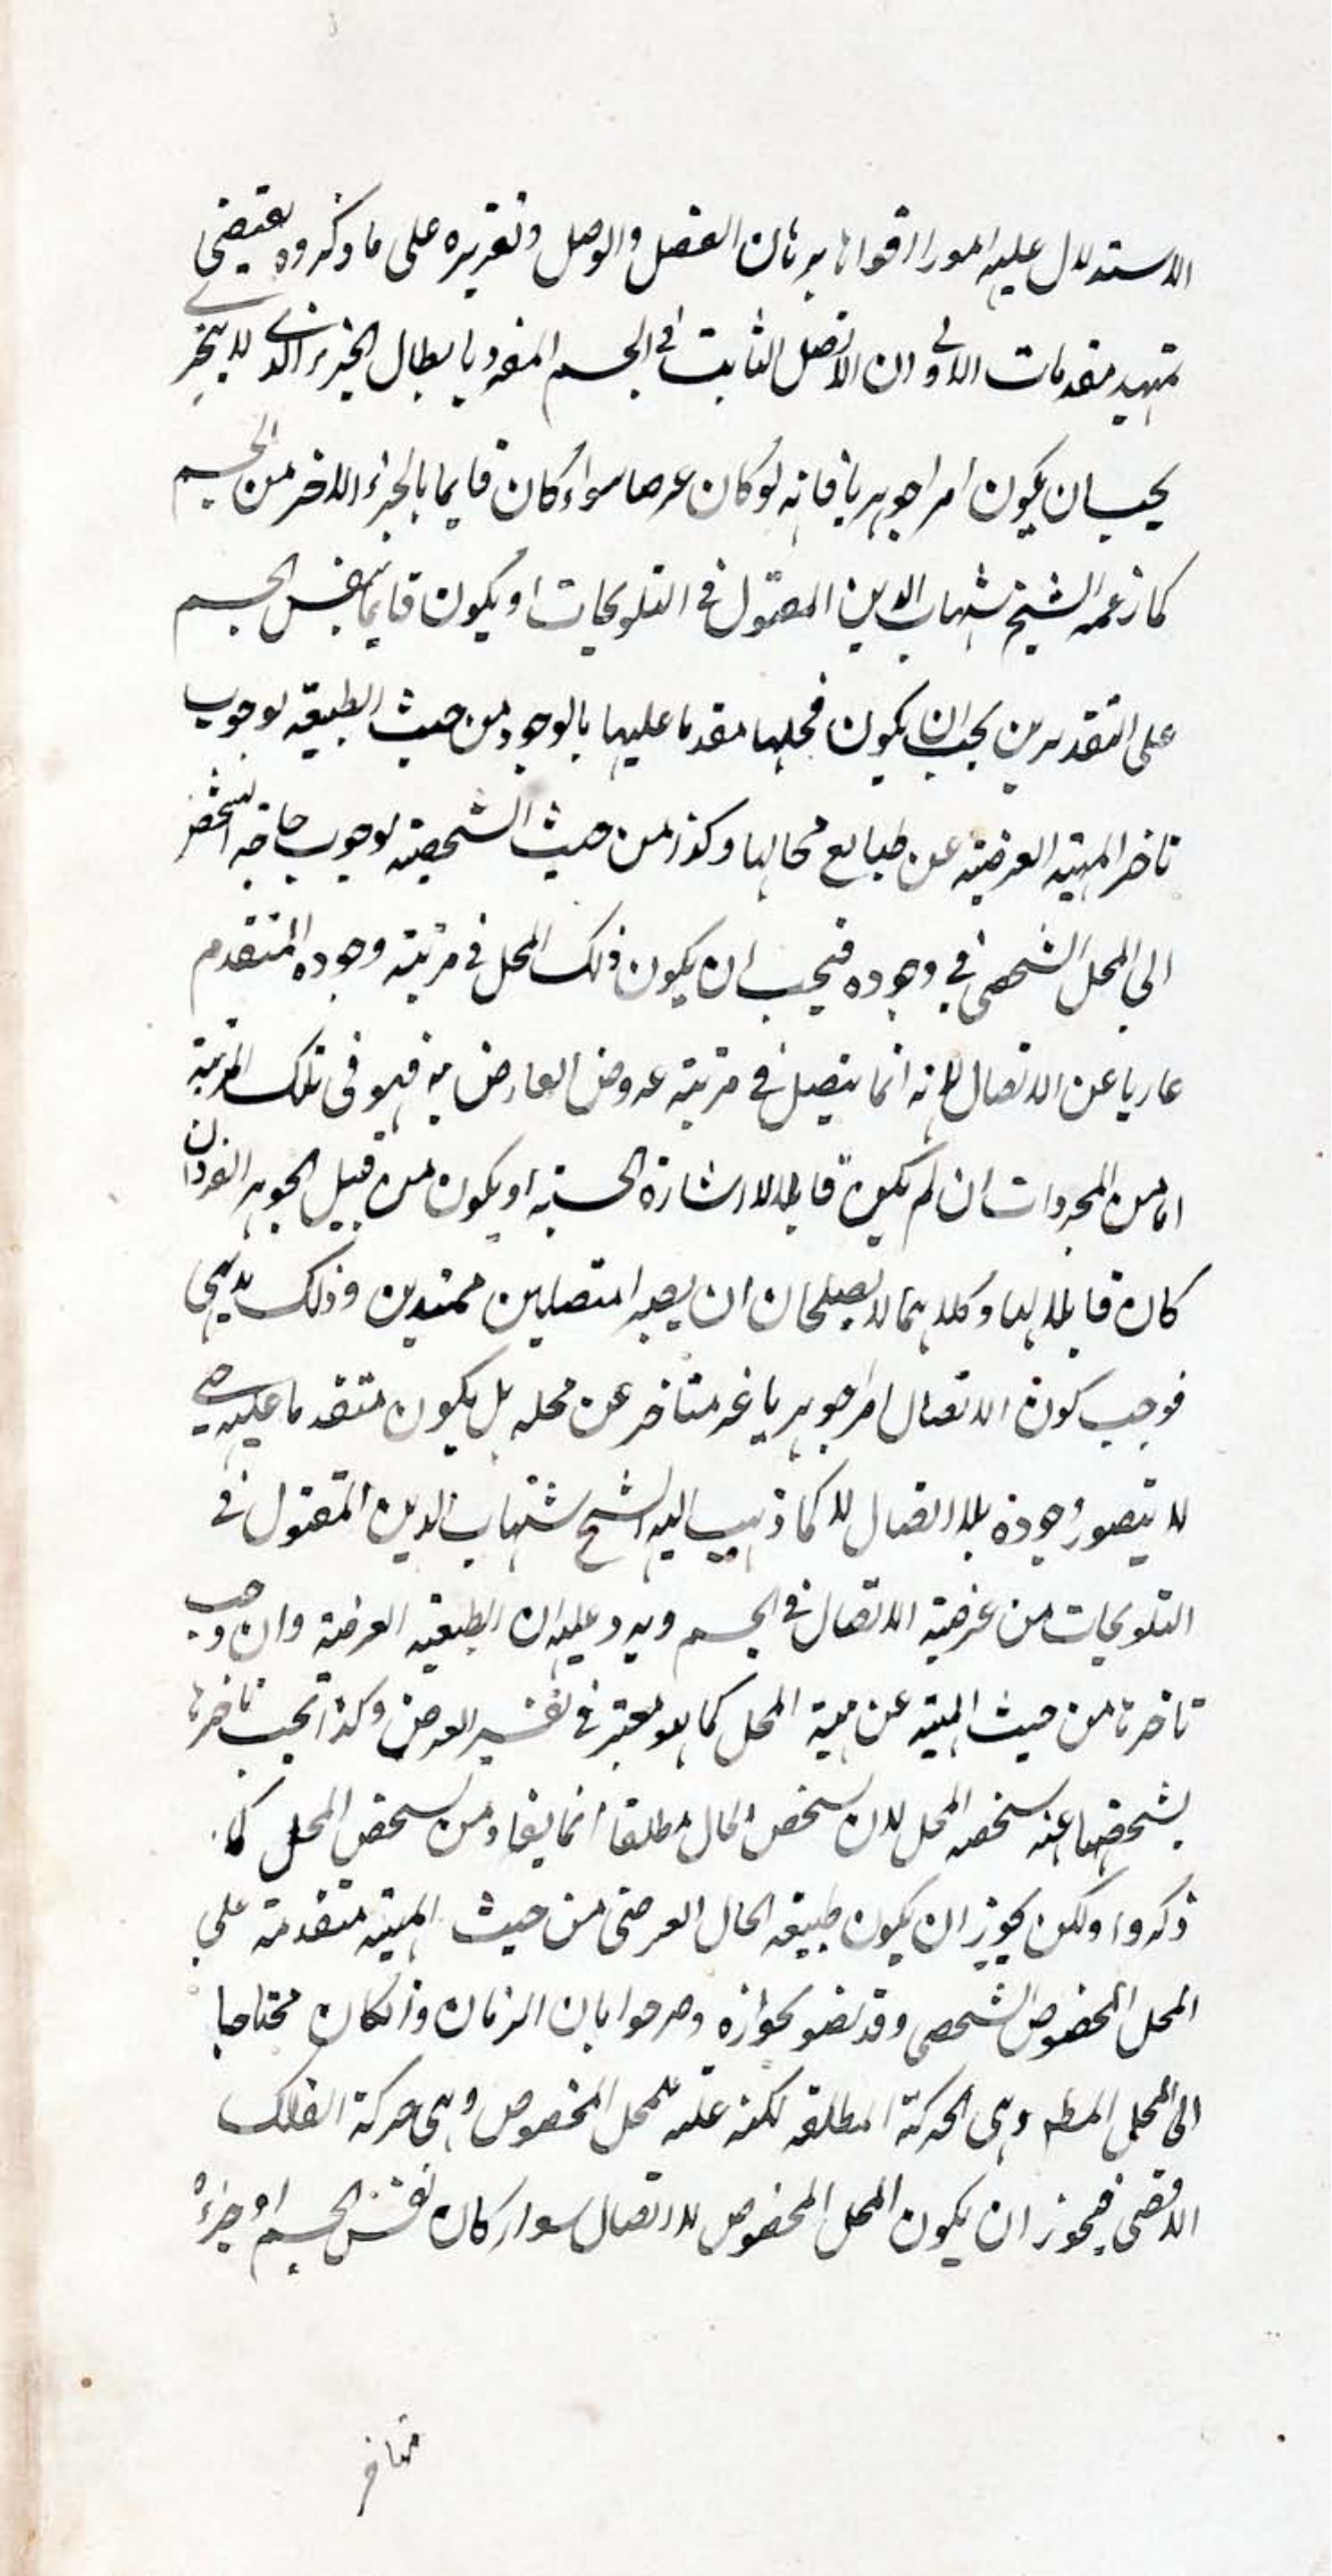 الاستدلال عليه امور اقواها برهان الفصل والوصل وتقريره على ما ذكروه يقتضي
تمهيد مقدمات الاولى ان الاتصال الثابت في الجسم المفرد بابطال الجزء الذي لا يتجزى
يجب ان يكون امرا جوهريا فانه لو كان عرضا سواء كان قايما بالجزء الاخر من الجسم
كما زعمه الشيخ شهاب الدين المقتول في التلويحات او يكون قايما بنفس الجسم
على التقديرين يجب ان يكون محلها مقدما عليها بالوجود من حيث الطبيعة لوجوب
تاخر المهية العرضية عن طبايع محالها وكذا من حيث الشخصية لوجوب حاجة الشخص
الى المحل الشخصي في وجوده فيجب ان يكون ذلك المحل في مرتبة وجوده المتقدم
عاريا عن الاتصال لانه انما يتصل في مرتبة عروض العارض به فهو في تلك المرتبة
اما من المجردات ان لم يكن قابلا للاشارة الحسية او يكون من قبيل الجوهر الفرد ان
كان قابلا لها وكلاهما لا يصلحان ان يصيرا متصلين ممتدين وذلك بديهي
فوجب كون الاتصال امرا جوهريا غير متاخر عن محله بل يكون متقدما عليه حتى
لا يتصور وجوده بلا اتصال لا كما ذهب اليه الشيخ شهاب الدين المقتول في
التلويحات من عرضية الاتصال في الجسم ويرد عليه ان الطبيعة العرضية وان وجب
تاخرها من حيث المهية عن مهية المحل كما هو معتبر في تفسير العرض وكذا يجب تاخرها
بشخصها عنه بشخصه المحل لان تشخص الحال مطلقا انما يفاد من تشخص المحل كما
ذكروا ولكن يجوز ان يكون طبيعة الحال العرضي من حيث المهية متقدمة على
المحل المخصوص الشخصي وقد نصوا بجوازه وصرحوا بان الزمان وان كان محتاجا
الى المحل المط وهي الحركة المطلقة لكنه علة للمحل المخصوص وهي حركة الفلك
الاقصى فيجوز ان يكون المحل المخصوص للاتصال سواء كان نفس الجسم او جزءه